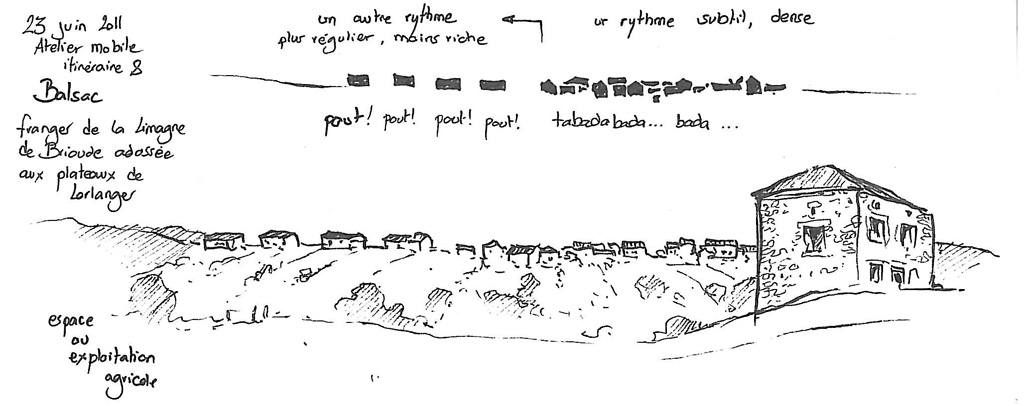 23 juin 2011
Atelier mobile
itinéraire 8
Balsac
franges de la Limagne
de Brioude adossée
aux plateaux de
Lorlanges
un autre rythme
plus régulier, moins riche
un rythme subtil, dense
pout! pout! pout! pout! tabadabada... bada ...
espace
ou
exploitation
agricole